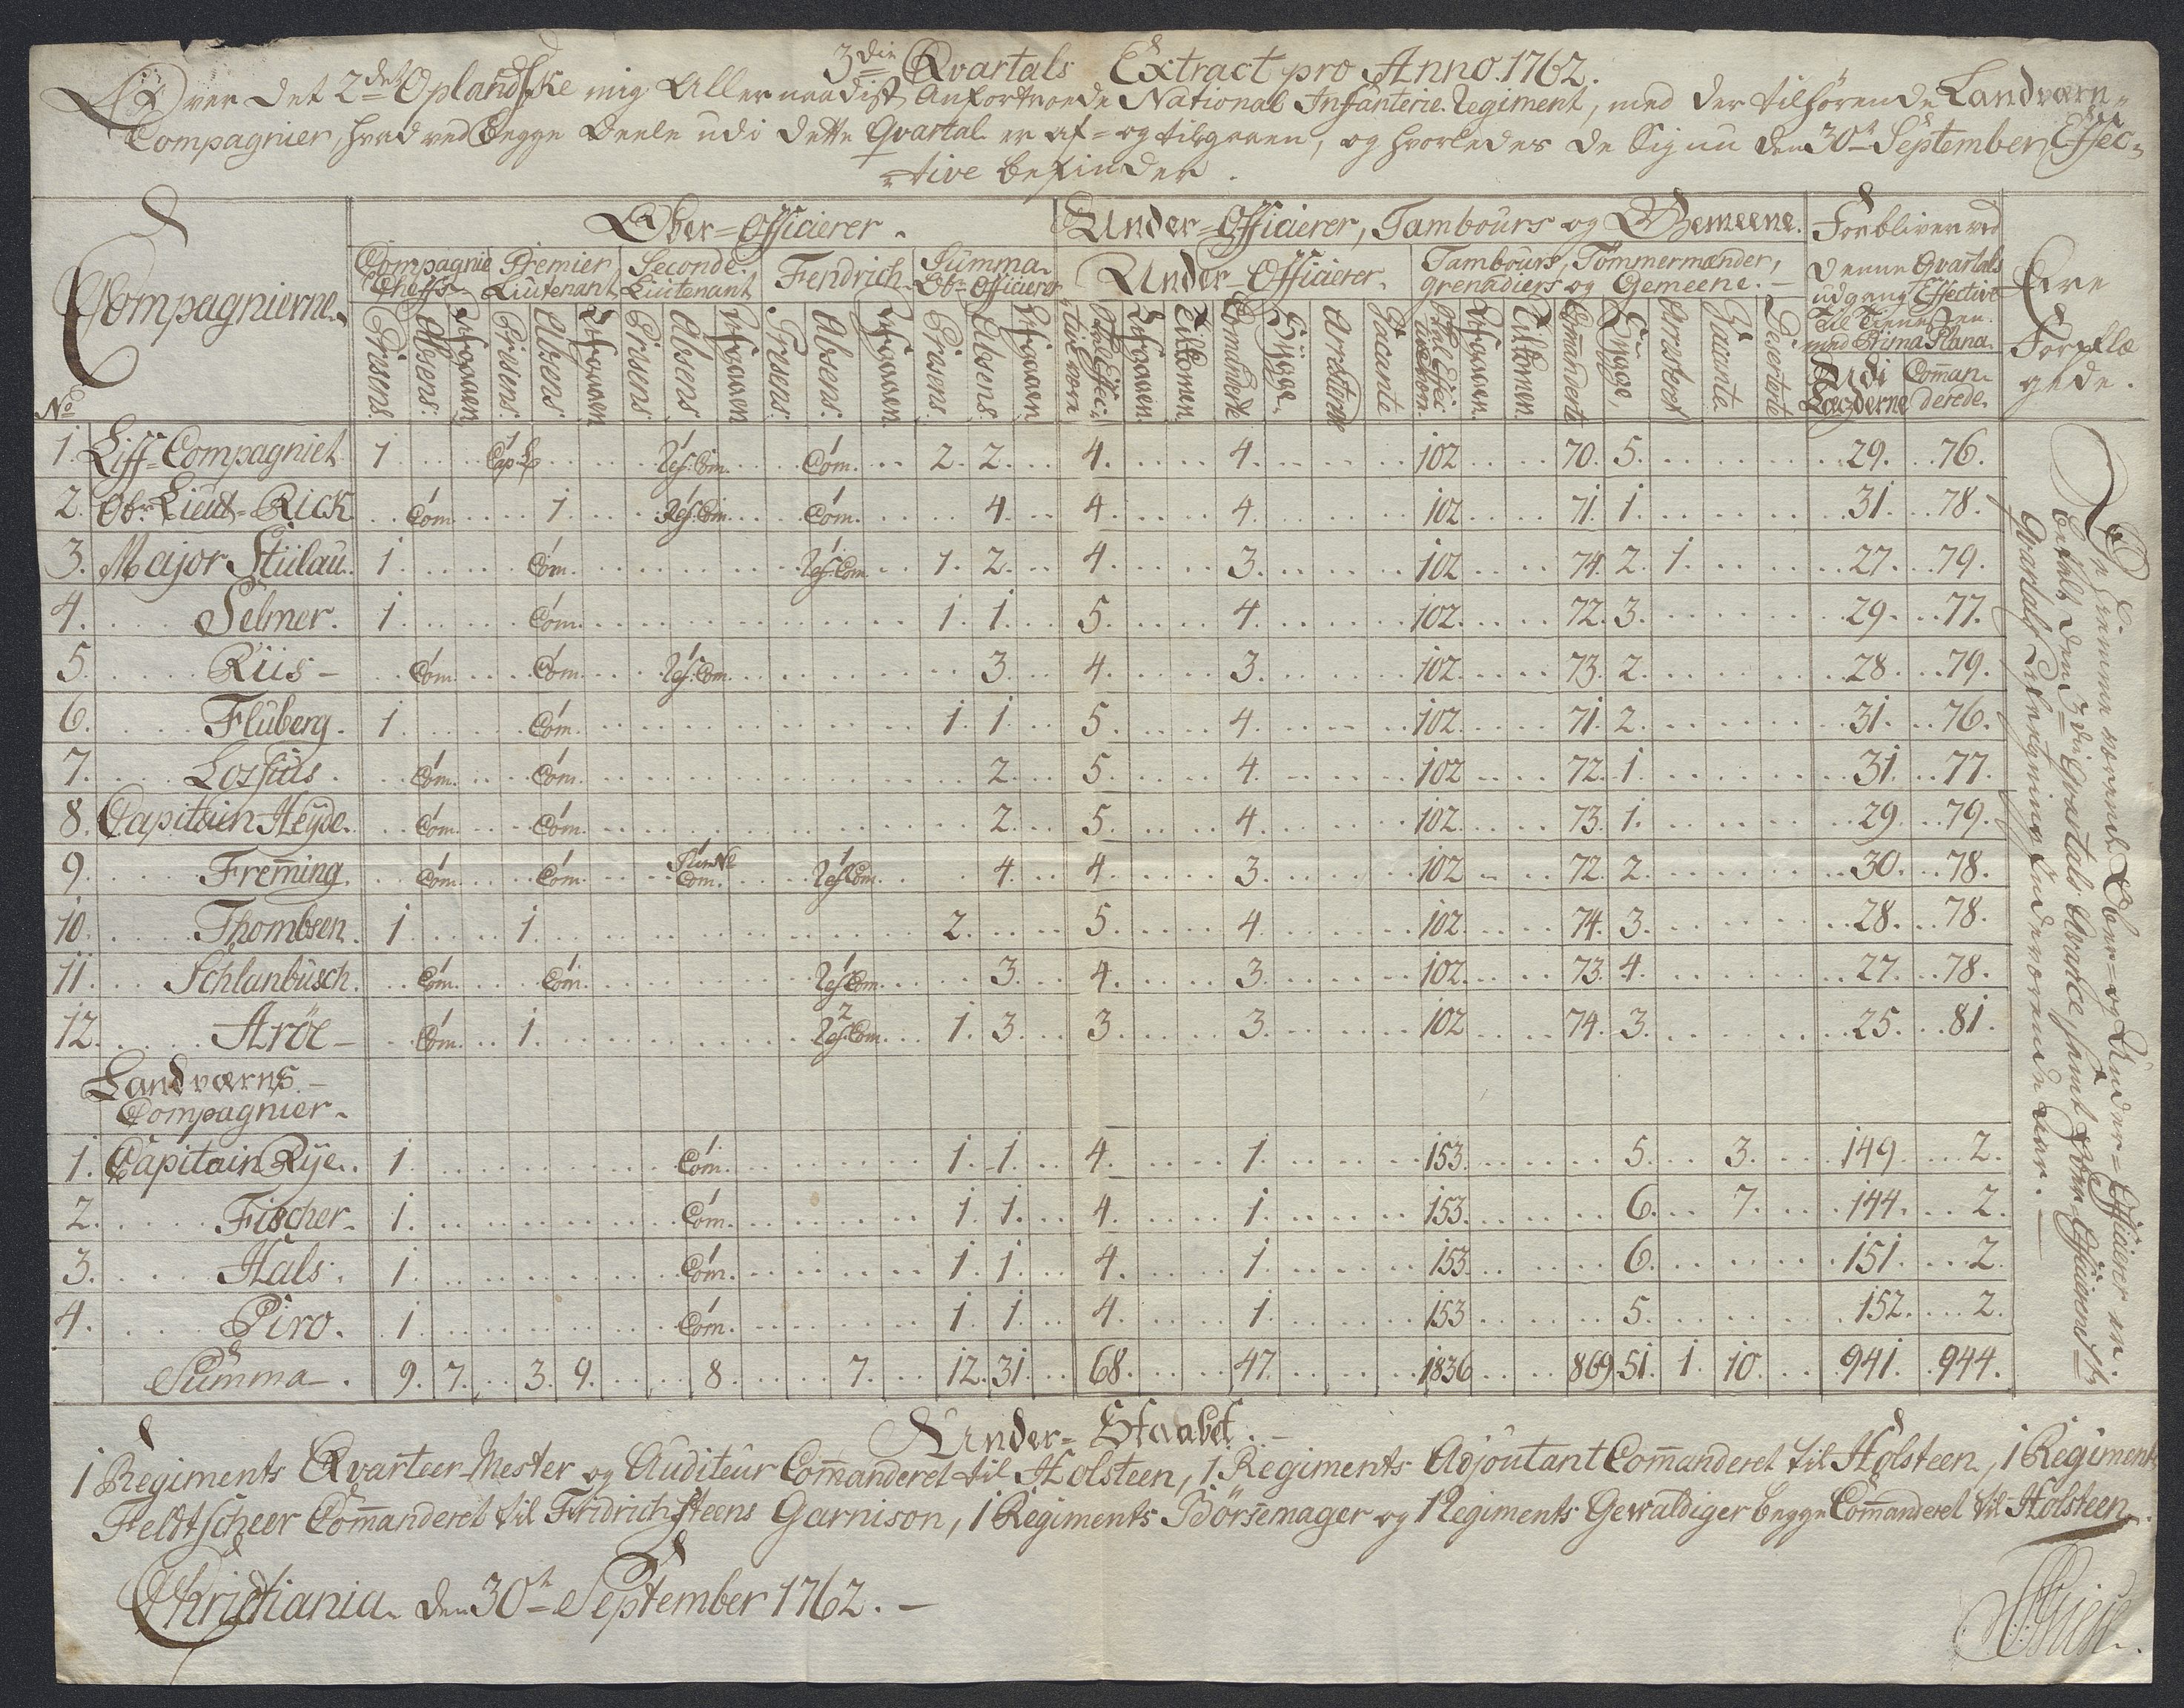 3die Qvartals Extract pro Anno. 1762.
Over det 2det Oplandske mig Allernaadigst Anfortroede National Infanterie Regiment, med der tilhørende Landværn-
Compagnier, hvad ved begge Deele udi dette Qvartal er af- og tilgaaen, og hvorledes de Sig nu den 30te September Effec-
tive befinder.
Compagnierne.
No
Ober-Officierer.
Under-Officierer, Tambours og Gemeene.
Forbliver ved
denne Qvartals
udgang Effective
til Tienesten
med Prima Plana.
Ere
Forplæ
gede.
Compagnie Cheffs
Premier Lieutenant
Seconde Lieutenant
Fendrich
Summa Ob. Officierer
Under-Officierer.
Tambours, Tömmermænder,
grenadiers og Gemeene.
Præsens. Absens. Afgaaen Præsens. Absens. Afgaaen Præsens. Absens. Afgaaen Præsens. Absens. Afgaaen Præsens. Absens. Afgaaen
Tilkomen. Comanderte Syyge. Arresterede Vacante
Afgaaen. Tilkomen. Comanderte Syyge, Arresteret Vacante Deserterte
Udi Lægderne Coman-derede.
1. Liff-Compagniet 1. 1 Cap. 1 Res. Com. 1 Com. 2. 2. 4. 4. 102 70. 5. 29. 76.
2. Obr. Lieut. Rick 1 Com. 1 1 Res. Com. 1 Com. 4. 4. 4. 102 71. 1. 31. 78.
3. Major Stülau. 1. 1 Com. 1 Res. Com. 1. 2. 4. 3. 102 74. 2. 1. 27. 79.
4. Selmer. 1. 1 Com. 1. 1. 5. 4. 102. 72. 3. 29. 77.
5. Riis - 1 Com. 1 Com. 1 Res. Com. 3. 4. 3. 102. 73. 2. 28. 79.
6. Fluberg. 1. 1 Com. 1. 1. 5. 4. 102. 71. 2. 31. 76.
7. Lossius. 1 Com. 1 Com. 2. 5. 4. 102 72. 1. 31. 77.
8. Capitain Heyde. 1 Com. 1 Com. 2. 5. 4. 102. 73. 1. 29. 79.
9. Freming. 1 Com. 1 Com. Com. 1 Res. Com. 4. 4. 3. 102 72. 2. 30. 78.
10. Thombsen. 1. 1. 2. 5. 4. 102. 74. 3. 28. 78.
11. Schlanbusch. 1 Com. 1 Com. 1 Res. Com. 3. 4. 3. 102. 73. 4. 27. 78.
12. Aröe - 1 Com. 1. 2 Res. Com. 1. 3. 3. 3. 102 74. 3. 25. 81.
Landværns-
Compagnier.
1. Capitain Rye. 1. 1 Com. 1. 1. 4. 1. 153. 5. 3. 149. 2.
2. Fischer. 1. 1 Com. 1. 1. 4. 1. 153. 6. 7. 144. 2.
3. Hals. 1. 1 Com. 1. 1. 4. 1. 153. 6. 151. 2.
4. Piro. 1. 1 Com. 1. 1. 4. 1. 153 5. 152. 2.
Summa. 9. 7. 3. 9. 8. 7. 12. 31. 68. 47. 1836 869. 51. 1. 10. 941. 944.
De hiemme værende Ober- og Under-Officierer er
betalt den 3die Qvartals
Qvartals
Under-Staabet.
1 Regiments Qvarteer-Mester og Auditeur Comanderet til Holsteen, 1 Regiments Adjoutant Comanderet til Holsteen, 1 Regiments
Feldtscheer Comanderet til Fridrichsteens Garnison, 1 Regiments Börsemager og 1 Regiments Gewaldiger begge Comanderet til Holsteen.
Christiania den 30te September 1762.